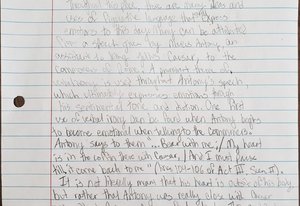 Throughout this piece, there are many ideas and
uses of figurative language that express
emotions to this day. Many can be attributed
from a speech given by Marcus Antony, an
assistant to King Julius Caesar, to the
commoners of Rome. A prominent theme of
is throughout Antony's speech,
which ultimately expresses emotions through
his sentimental tone and diction. One first
use of verbal irony can be found when Antony begins
to become emotional when talking to the commoners.
Antony says to them "...Bear with me; / My heart
is in the coffin there with Caesar, / And I must pause
till it come back to me" (lines 104-106 of Act III, Scene II).
It is not literally meant that his heart is outside of his body,
but rather that Antony was really close with